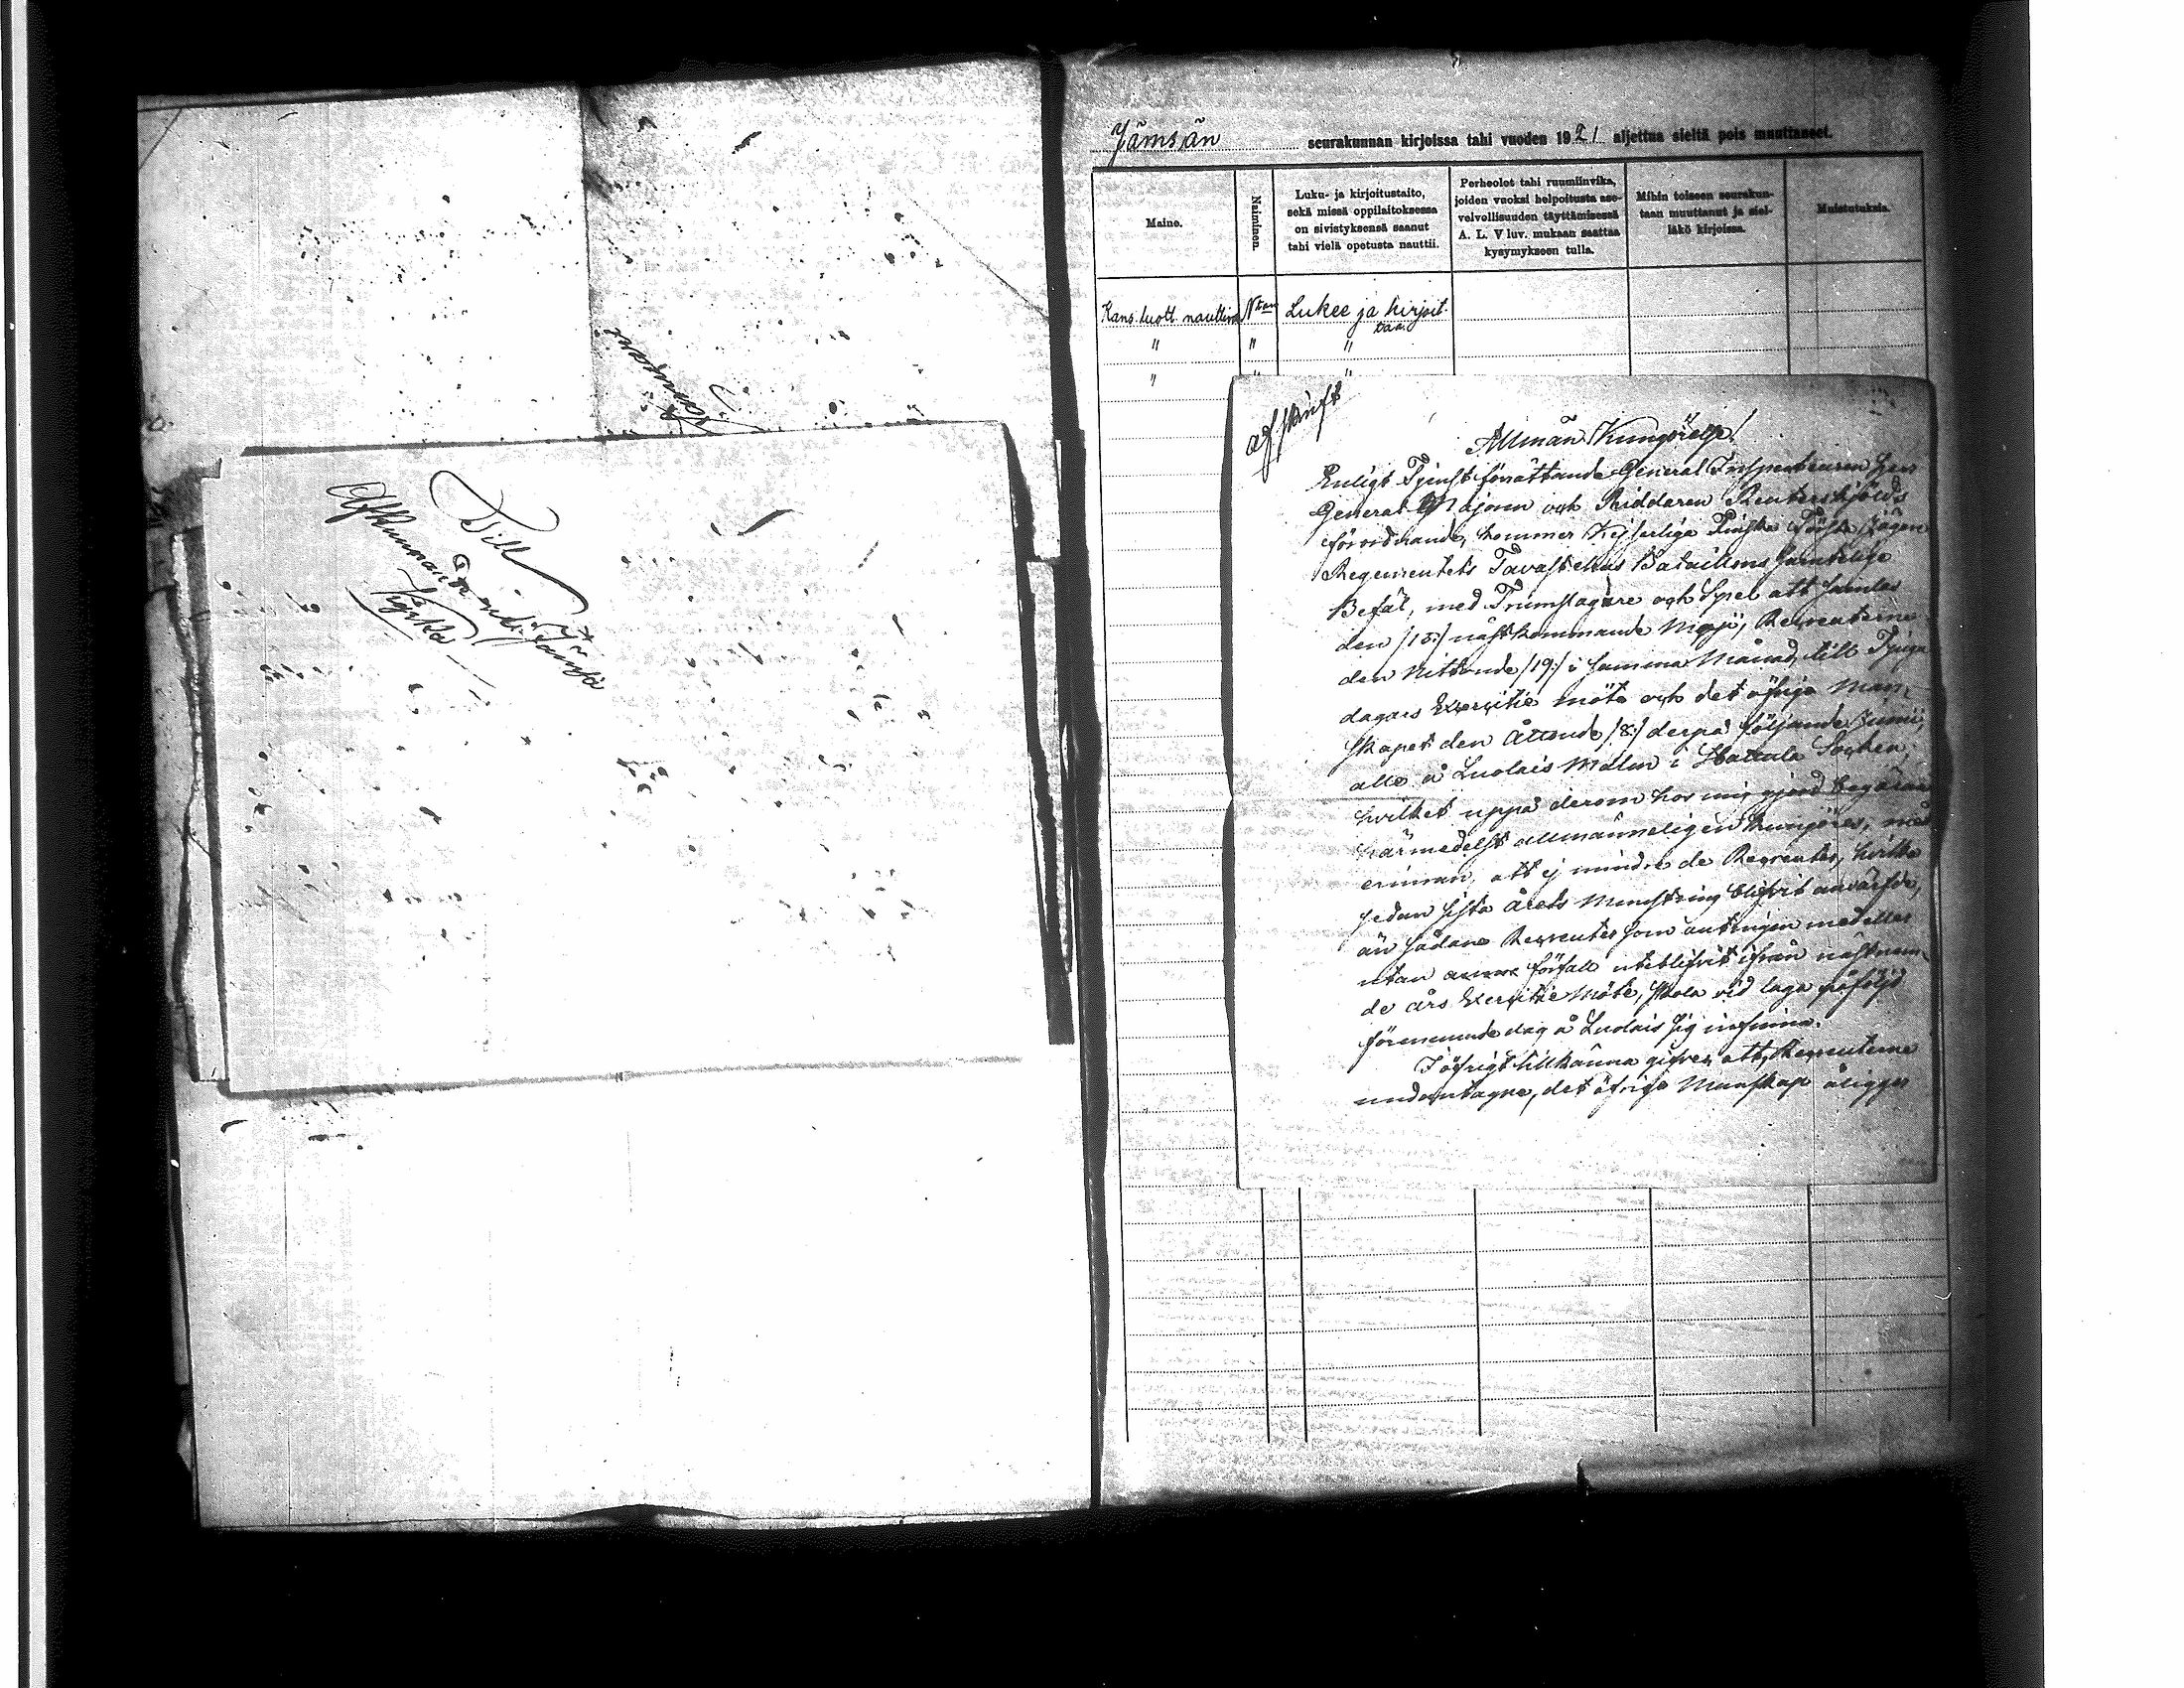 Till
Afkunnande uti Jämsä
Kyrka
Jämsän seurakunnan kirjoissa tahi vuoden 1921 aljettua sieltä pois muuttaneet.
Maine.
Naiminen.
Luku- ja kirjoitustaito,
sekä missä oppilaitoksessa
on sivistyksensä saanut
tahi vielä opetusta nauttii.
Perheolot tahi ruumiinvika,
joiden vuoksi helpoitusta ase-
velvollisuuden täyttämisessä
A. L. V luv. mukaan saattaa
kysymykseen tulla.
Mihin toiseen seurakun-
taan muuttanut ja siel-
läkö kirjoissa.
Muistutuksia.
Kans. luott. nauttiva Nton Lukee ja kirjoit-
taa.
" " "
" " "
Afskrift
Allmän Kungörelse!
Enligt Tjenstförrättande General Inspecteuren Herr
General Majoren och Riddaren Reuterskjölds
förordnande, kommer Kejserliga Finska Första Jägare
Regementets Tavastehus Bataillons samtelige
Befäl, med Trumslagare och Spel att samlas
den /15:/ nästkommande Maji, Recreuterne
den Nittonde /19:/ i samma Månad, till Tjugu
dagars Exercitie möte och det öfriga Man-
skapet den Åttonde /8:/ derpå följande Junii,
alle å Luolais Malm i Hattula Sochen,
hvilket uppå derom hos mig gjord begäran
härmedelst allmänneligen kungöres, med
erinran, att ej mindre de Recreuter, hvilka
sedan sista årets Munstring blifvit anvärfde,
än sådane Recreuter som antingen med eller
utan förfall uteblifvit ifrån nästnem-
de års Exercitie Möte, skola vid laga påföljd
förenemnde dag å Luolais sig infinna.
I öfrigt tillkänna gifves att, Recreuterne
undantagne, det öfriga Manskap åligger